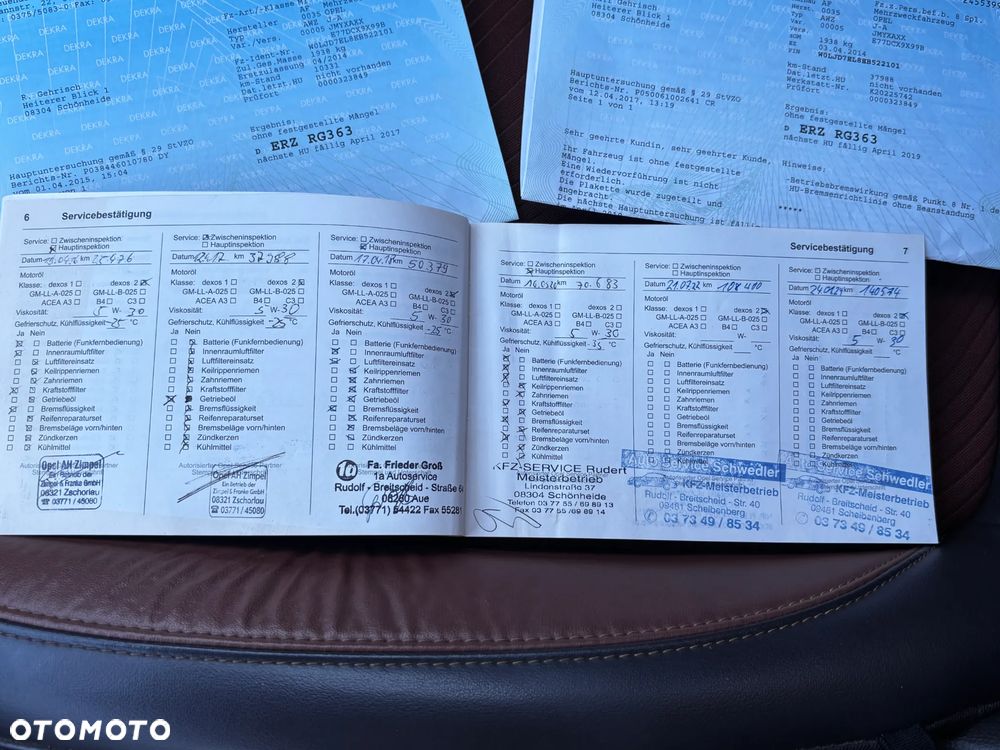 R. Gehrisch
Heiterer Blick 1
08304 Schönheide
Fz-Ident-Nr. W0LJD7EL8EB522101
Zul.Ges.Masse 1938 kg
Erstzulassung 04/2014
km-Stand 10331
Dat.letzt.HU nicht vorhanden
Prüfort 0000323849
Ergebnis:
ohne festgestellte Mängel
D ERZ RG363
nächste HU fällig April 2017
Hauptuntersuchung gemäß § 29 StVZO
Berichts-Nr. P038446010780 DY
vom 01.04.2015, 15:04
Heiterer Blick 1
08304 Schönheide
Hauptuntersuchung gemäß § 29 StVZO
Berichts-Nr. P050061002641 CR
vom 12.04.2017, 13:19
Seite 1 von 1
km-Stand 37988
Dat.letzt.HU nicht vorhanden
Werkstatt-Nr. K20225742
Prüfort 0000323849
Ergebnis:
ohne festgestellte Mängel
D ERZ RG363
nächste HU fällig April 2019
Sehr geehrte Kundin, sehr geehrter Kunde,
Ihr Fahrzeug ist ohne festgestellte
Mängel.
Eine Wiedervorführung ist nicht
erforderlich.
Die Plakette wurde zugeteilt und
angebracht.
Hinweise:
-Betriebsbremswirkung gemäß Punkt 8 Nr. 1 der
HU-Bremsenrichtlinie ohne Beanstandung
*****
6 Servicebestätigung
Service: Zwischeninspektion
Hauptinspektion
Datum km 25476
Motoröl
Klasse: dexos 1 dexos 2
GM-LL-A-025 GM-LL-B-025
ACEA A3 B4 C3
Viskosität: 5 W- 30
Gefrierschutz, Kühlflüssigkeit -25 °C
Ja Nein
Batterie (Funkfernbedienung)
Innenraumluftfilter
Luftfiltereinsatz
Keilrippenriemen
Zahnriemen
Kraftstofffilter
Getriebeöl
Bremsflüssigkeit
Reifenreparaturset
Bremsbeläge vorn/hinten
Zündkerzen
Kühlmittel
Opel AH Zimpel
Ein Betrieb der
Zimpel & Franke GmbH
08321 Zschorlau
☎ 03771 / 45080
Service: Zwischeninspektion
Hauptinspektion
Datum km 37988
Motoröl
Klasse: dexos 1 dexos 2
GM-LL-A-025 GM-LL-B-025
ACEA A3 B4 C3
Viskosität: 5 W- 30
Gefrierschutz, Kühlflüssigkeit -25 °C
Ja Nein
Batterie (Funkfernbedienung)
Innenraumluftfilter
Luftfiltereinsatz
Keilrippenriemen
Zahnriemen
Kraftstofffilter
Getriebeöl
Bremsflüssigkeit
Reifenreparaturset
Bremsbeläge vorn/hinten
Zündkerzen
Kühlmittel
Opel AH Zimpel
Ein Betrieb der
Zimpel & Franke GmbH
08321 Zschorlau
☎ 03771 / 45080
Service: Zwischeninspektion
Hauptinspektion
Datum 17.04.18 km 50379
Motoröl
Klasse: dexos 1 dexos 2
GM-LL-A-025 GM-LL-B-025
ACEA A3 B4 C3
Viskosität: 5 W- 30
Gefrierschutz, Kühlflüssigkeit -25 °C
Ja Nein
Batterie (Funkfernbedienung)
Innenraumluftfilter
Luftfiltereinsatz
Keilrippenriemen
Zahnriemen
Kraftstofffilter
Getriebeöl
Bremsflüssigkeit
Reifenreparaturset
Bremsbeläge vorn/hinten
Zündkerzen
Kühlmittel
1a Fa. Frieder Groß
1a Autoservice
Rudolf - Breitscheid - Straße
08280 Aue
Tel.(03771) 54422 Fax 55281
Servicebestätigung 7
Service: Zwischeninspektion
Hauptinspektion
Datum km 70.683
Motoröl
Klasse: dexos 1 dexos 2
GM-LL-A-025 GM-LL-B-025
ACEA A3 B4 C3
Viskosität: 5 W- 30
Gefrierschutz, Kühlflüssigkeit -35 °C
Ja Nein
Batterie (Funkfernbedienung)
Innenraumluftfilter
Luftfiltereinsatz
Keilrippenriemen
Zahnriemen
Kraftstofffilter
Getriebeöl
Bremsflüssigkeit
Reifenreparaturset
Bremsbeläge vorn/hinten
Zündkerzen
Kühlmittel
KFZ-SERVICE Rudert
Meisterbetrieb
Lindenstraße 37
08304 Schönheide
Telefon 03 77 55 / 69 89 13
Fax 03 77 55 / 69 89 14
Service: Zwischeninspektion
Hauptinspektion
Datum 21.07.22 km
Motoröl
Klasse: dexos 1 dexos 2
GM-LL-A-025 GM-LL-B-025
ACEA A3 B4 C3
Viskosität: W-
Gefrierschutz, Kühlflüssigkeit °C
Ja Nein
Batterie (Funkfernbedienung)
Innenraumluftfilter
Luftfiltereinsatz
Keilrippenriemen
Zahnriemen
Kraftstofffilter
Getriebeöl
Bremsflüssigkeit
Reifenreparaturset
Bremsbeläge vorn/hinten
Zündkerzen
Kühlmittel
Schwedler
KFZ-Meisterbetrieb
Rudolf - Breitscheid - Str. 40
09481 Scheibenberg
03 73 49 / 85 34
Service: Zwischeninspektion
Hauptinspektion
Datum km 140574
Motoröl
Klasse: dexos 1 dexos 2
GM-LL-A-025 GM-LL-B-025
ACEA A3 B4 C3
Viskosität: 5 W- 30
Gefrierschutz, Kühlflüssigkeit °C
Ja Nein
Batterie (Funkfernbedienung)
Innenraumluftfilter
Luftfiltereinsatz
Keilrippenriemen
Zahnriemen
Kraftstofffilter
Getriebeöl
Bremsflüssigkeit
Reifenreparaturset
Bremsbeläge vorn/hinten
Zündkerzen
Kühlmittel
Service Schwedler
KFZ-Meisterbetrieb
Rudolf - Breitscheid - Str. 40
09481 Scheibenberg
03 73 49 / 85 34
OTOMOTO